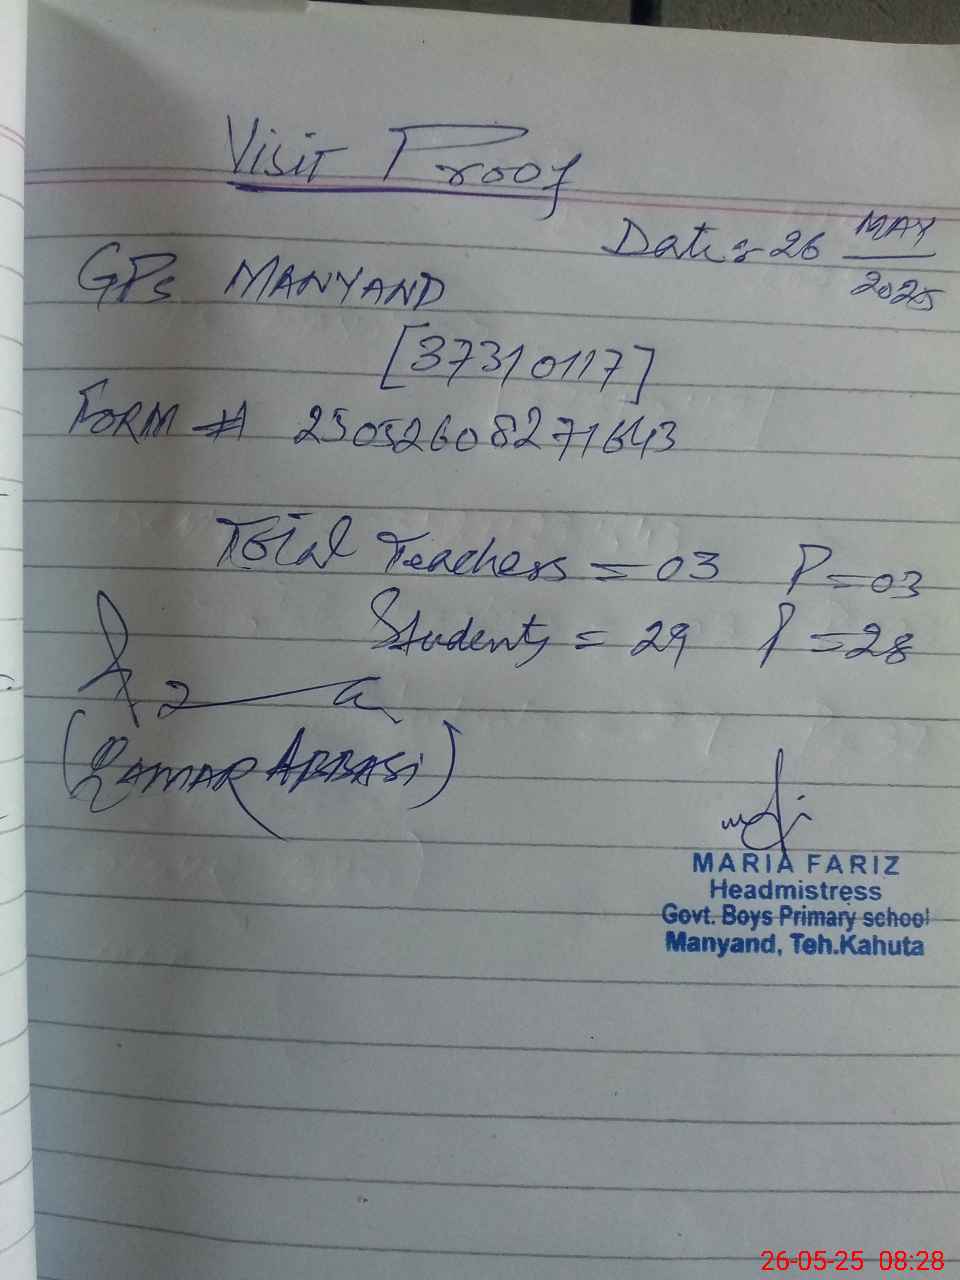 Visit Proof
Date:- 26 MAY 2025
GPS MANYAND
[37310117]
FORM # 25052608271643
Total Teachers = 03 P = 03
Students = 29 P = 28
(QAMAR ABBASI)
MARIA FARIZ
Headmistress
Govt. Boys Primary school
Manyand, Teh.Kahuta
26-05-25 08:28